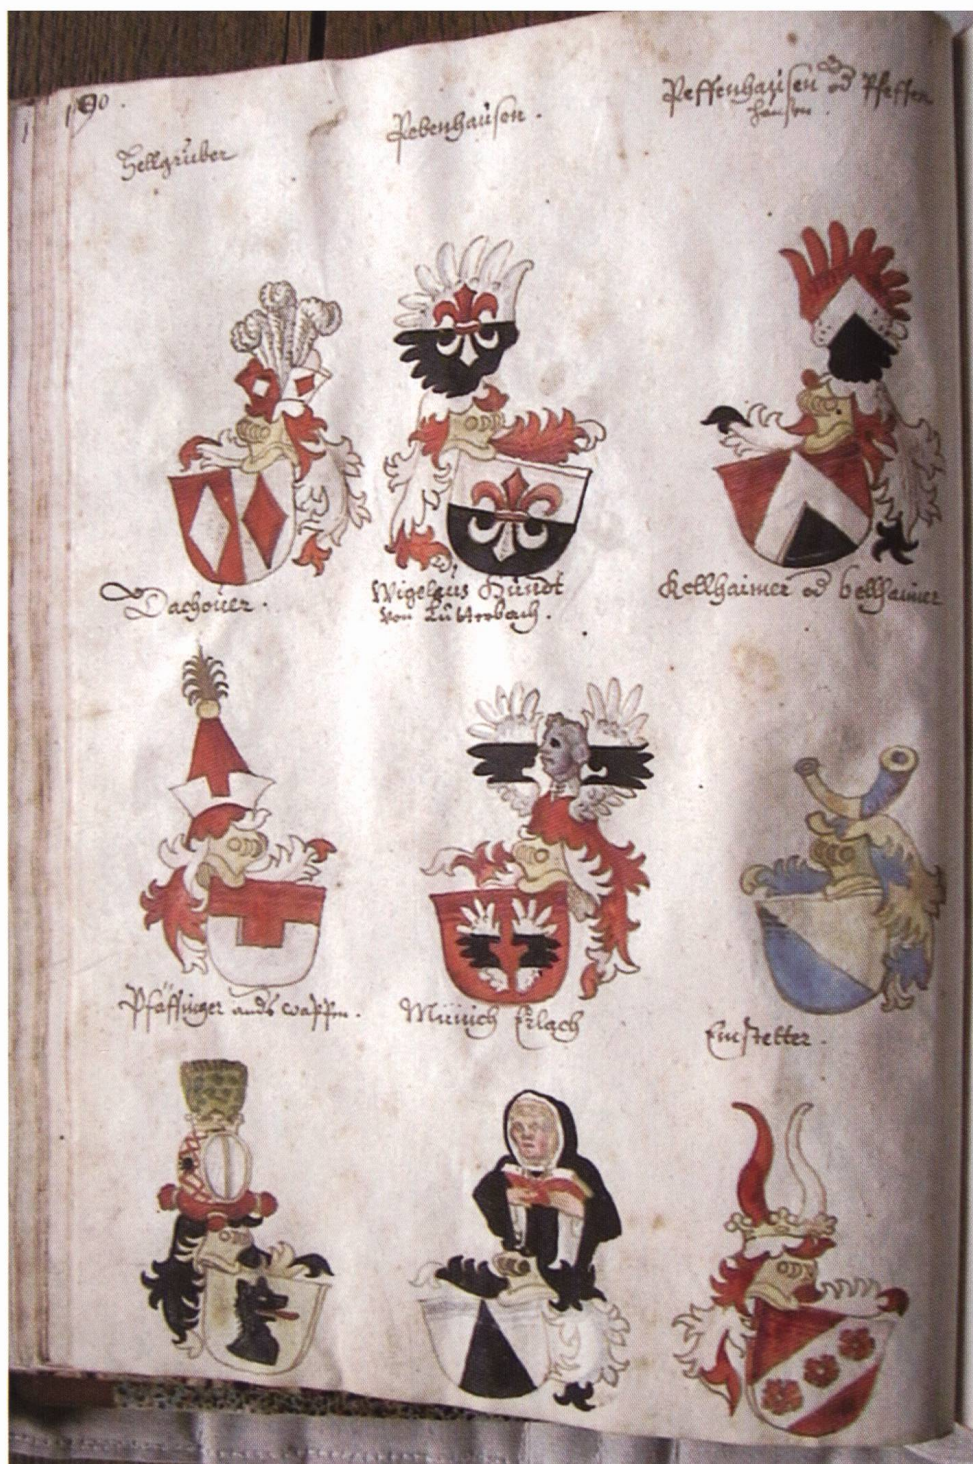 190.
Hellgrüber
Pebenhaüsen.
Peffenhaüsen od Pfeffen
haüsen.
Dachoüer.
Wigeleus Hündt
von Lütterbach.
Kellhaimer od hellhaimer
Pfäffinger ands wappen.
Münich Erlach
Emstetter.